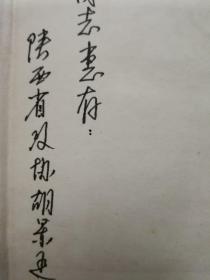 同志惠存：
陕西省政协胡景通